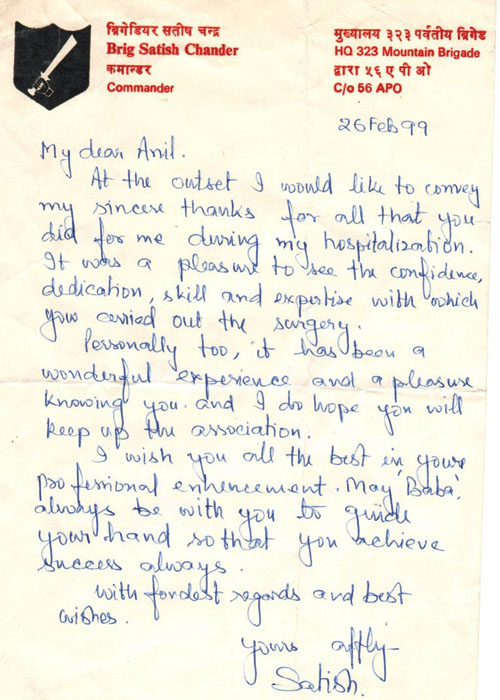 ब्रिगेडियर सतीश चन्द्र
Brig Satish Chander
कमान्डर
Commander
मुख्यालय ३२३ पर्वतीय ब्रिगेड
HQ 323 Mountain Brigade
द्वारा ५६ ए पी ओ
C/o 56 APO
26 Feb 99
My dear Anil.
At the outset I would like to convey
my sincere thanks for all that you
did for me during my hospitalization.
It was a pleasure to see the confidence,
dedication, skill and expertise with which
you carried out the surgery.
Personally too, it has been a
wonderful experience and a pleasure
knowing you. and I do hope you will
keep up the association.
I wish you all the best in your
professional enhancement. May 'Baba'
always be with you to guide
your hand so that you achieve
success always.
With fondest regards and best
wishes.
Yours affly
Satish.